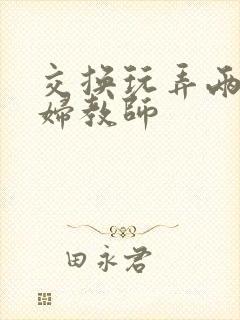 交换玩弄两
婦教師
田永君